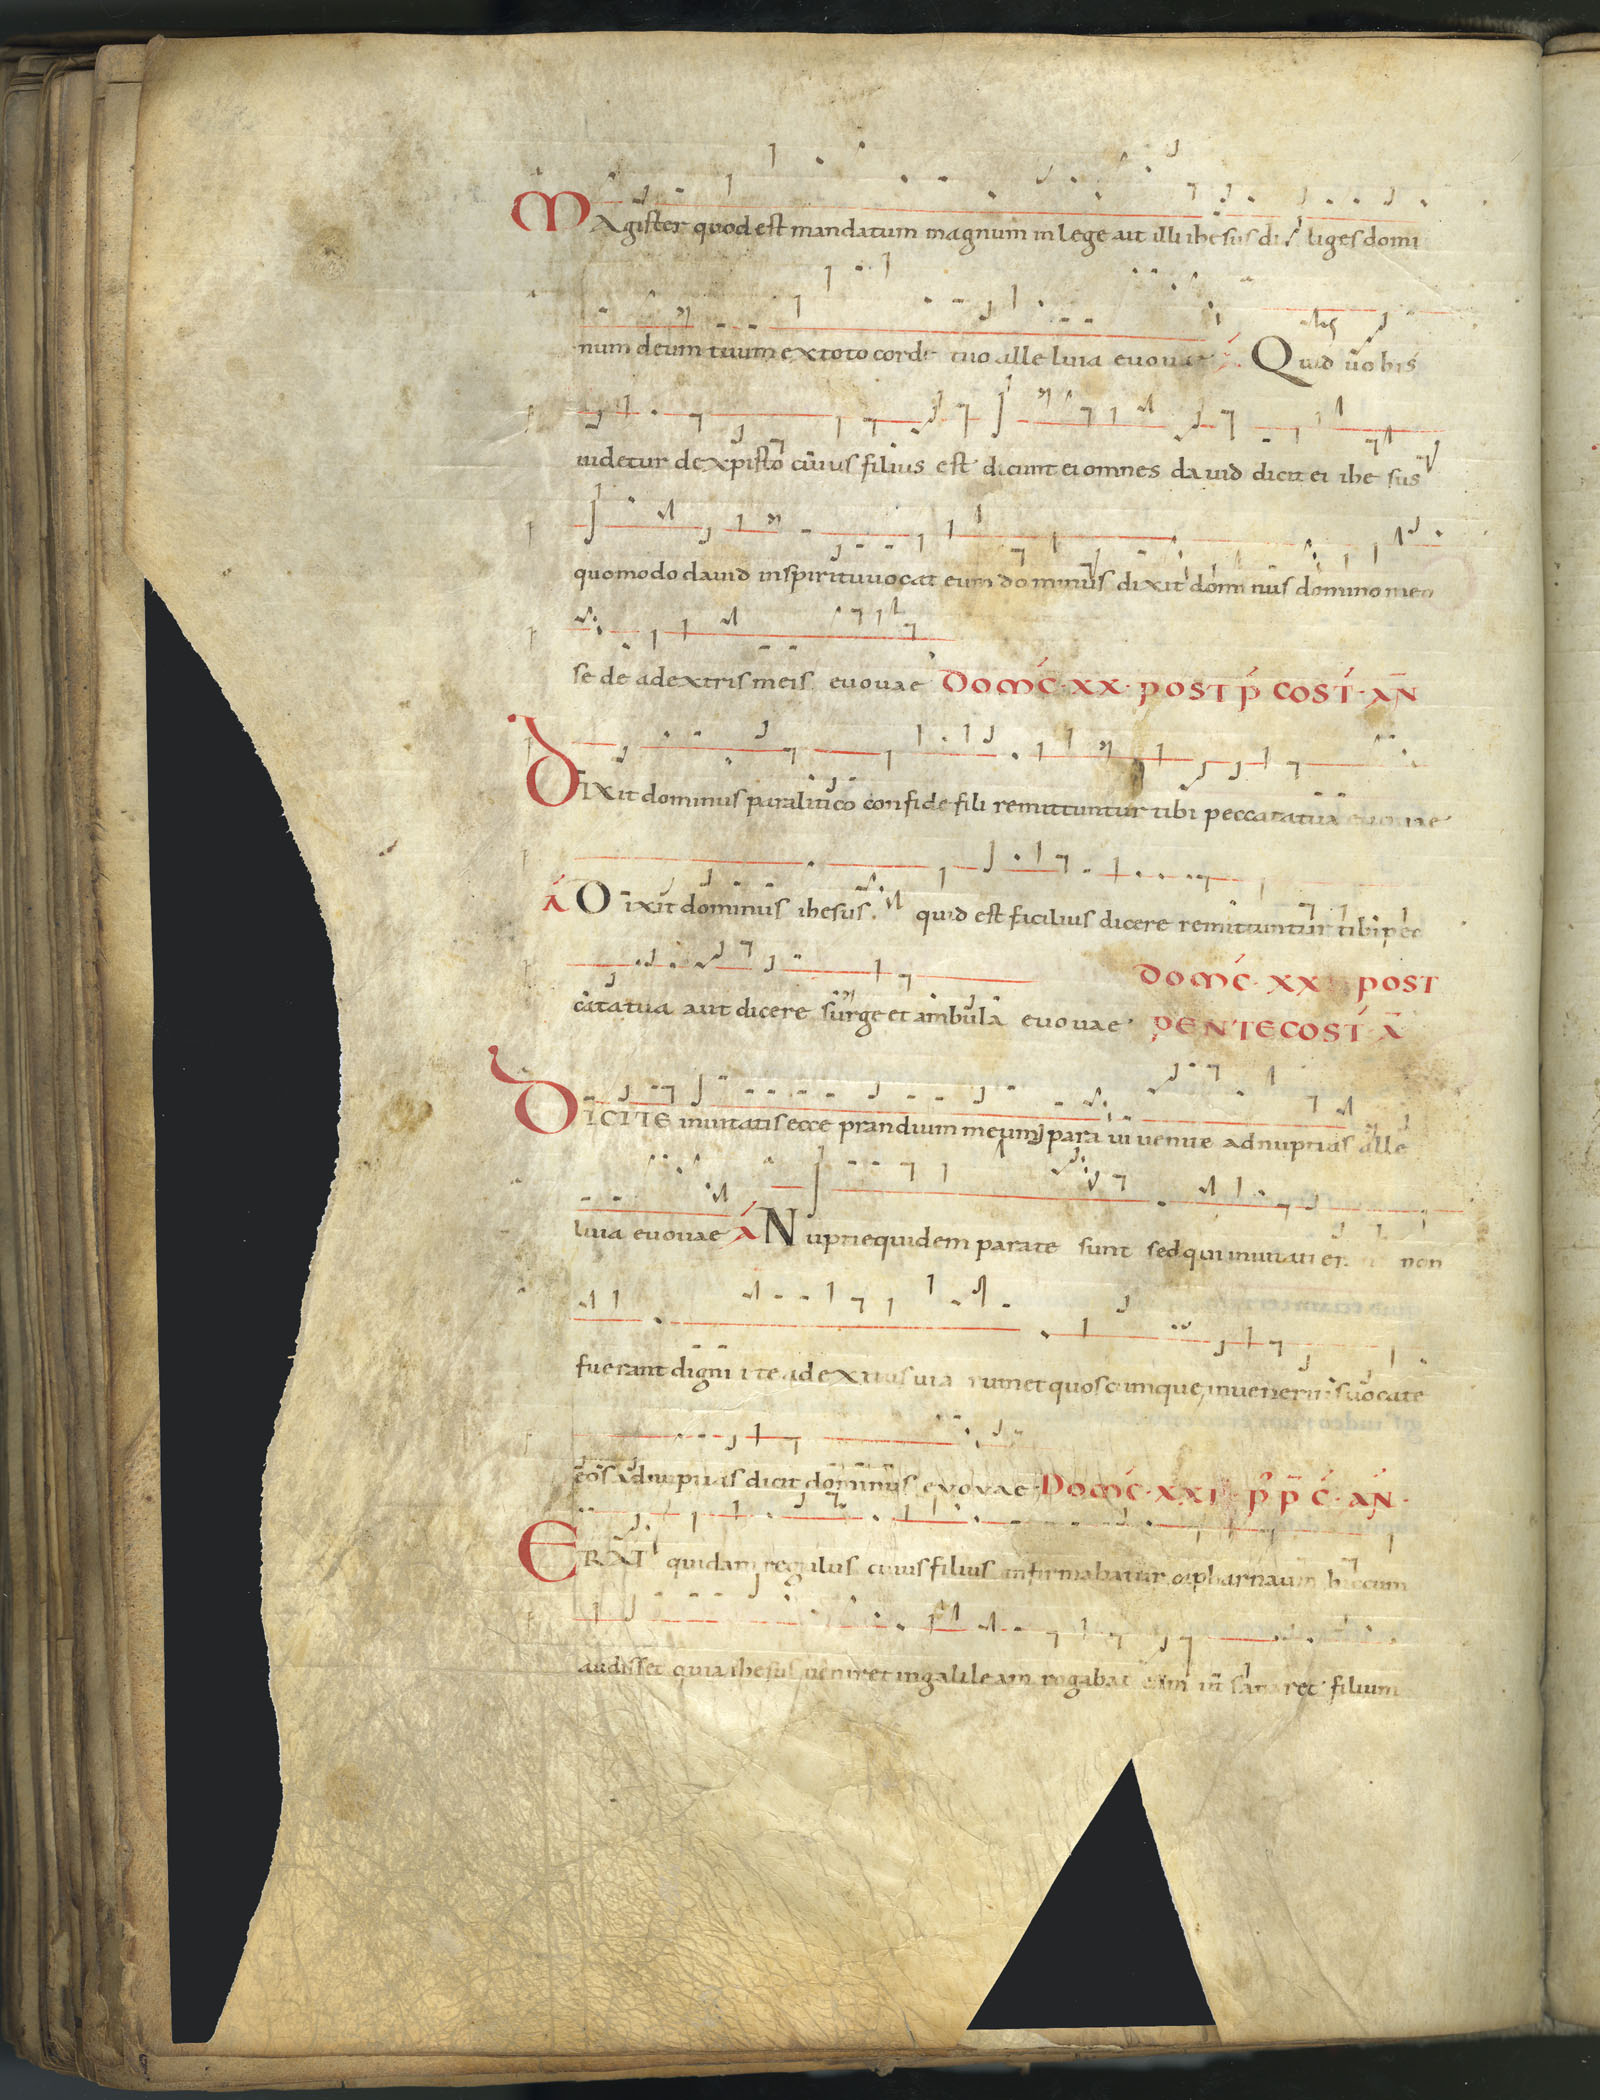 MAgister quod est mandatum magnum in lege ait illi ihesus di liges domi
num deum tuum ex toto corde tuo alle luia euouae A. Quid uobis
uidetur de xpisto cuius filius est dicunt ei omnes dauid dicit ei ihe sus
quomodo dauid in spiritu uocat eum dominus dixit dominus domino meo
se de adextris meis euouae DOMC · XX · POST P COST · AN
DIXit dominus paralitico confide fili remittuntur tibi peccata tua euouae
A Dixit dominus ihesus quid est facilius dicere remittuntur tibi pec
cata tua aut dicere surge et ambula euouae DOMC · XX POST
PENTECOST A
DICITE inuitatis ecce prandium meum para ui uenite ad nuptias alle
luia euouae A Nuptie quidem parate sunt sed qui inuitati er non
fuerant digni ite ad exitus uia rum et quoscumque inueneritis uocate
eos ad nuptias dicit dominus euouae DOMC · XXI · P P C · AN ·
ERAT quidam regulus cuius filius infirmabatur capharnaum hic cum
audisset quia ihesus ueniret in galileam rogabat eum ut sanaret filium